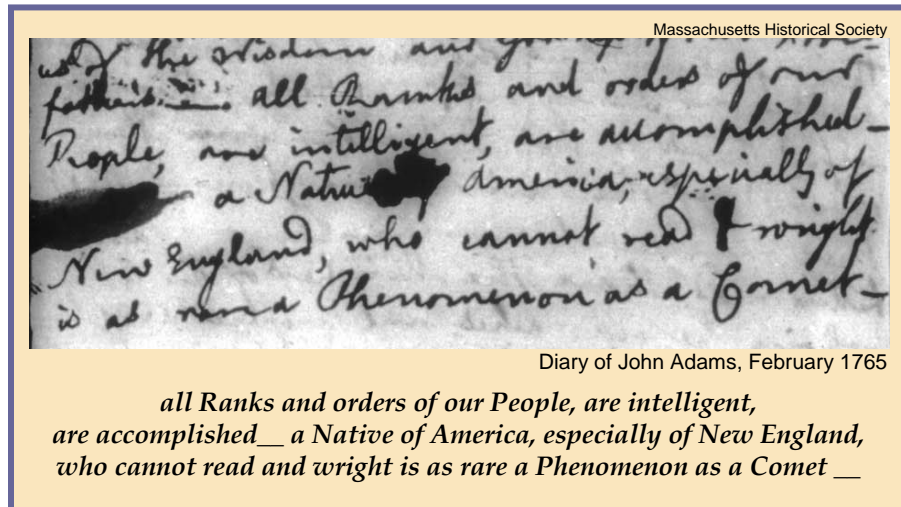 Massachusetts Historical Society
us of the wisdom and of our
fathers. all Ranks and orders of our
People, are intelligent, are accomplished_
a Native America, especially of
New England, who cannot read & wright
is as rare a Phenomenon as a Comet_
Diary of John Adams, February 1765
all Ranks and orders of our People, are intelligent,
are accomplished__ a Native of America, especially of New England,
who cannot read and wright is as rare a Phenomenon as a Comet __